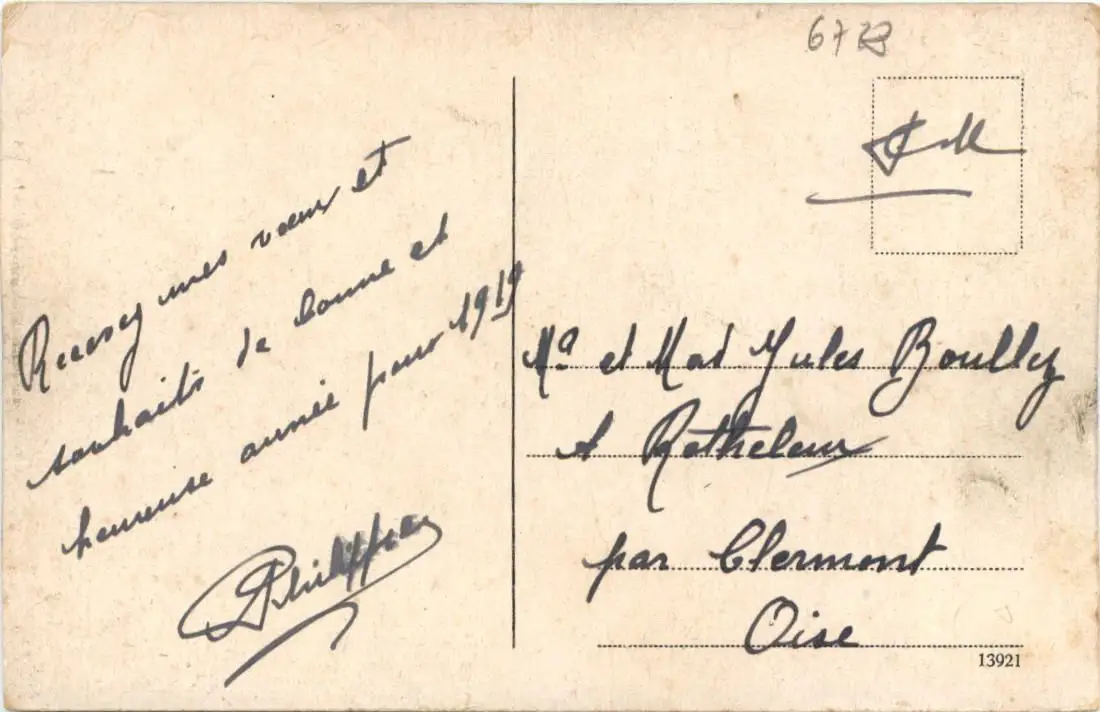 Recevez mes vœux et
souhaits de bonne et
heureuse année pour 1919
Philippe
6723
FM
Mr et Mad Jules Boullez
A Rotheleux
par Clermont
Oise
13921